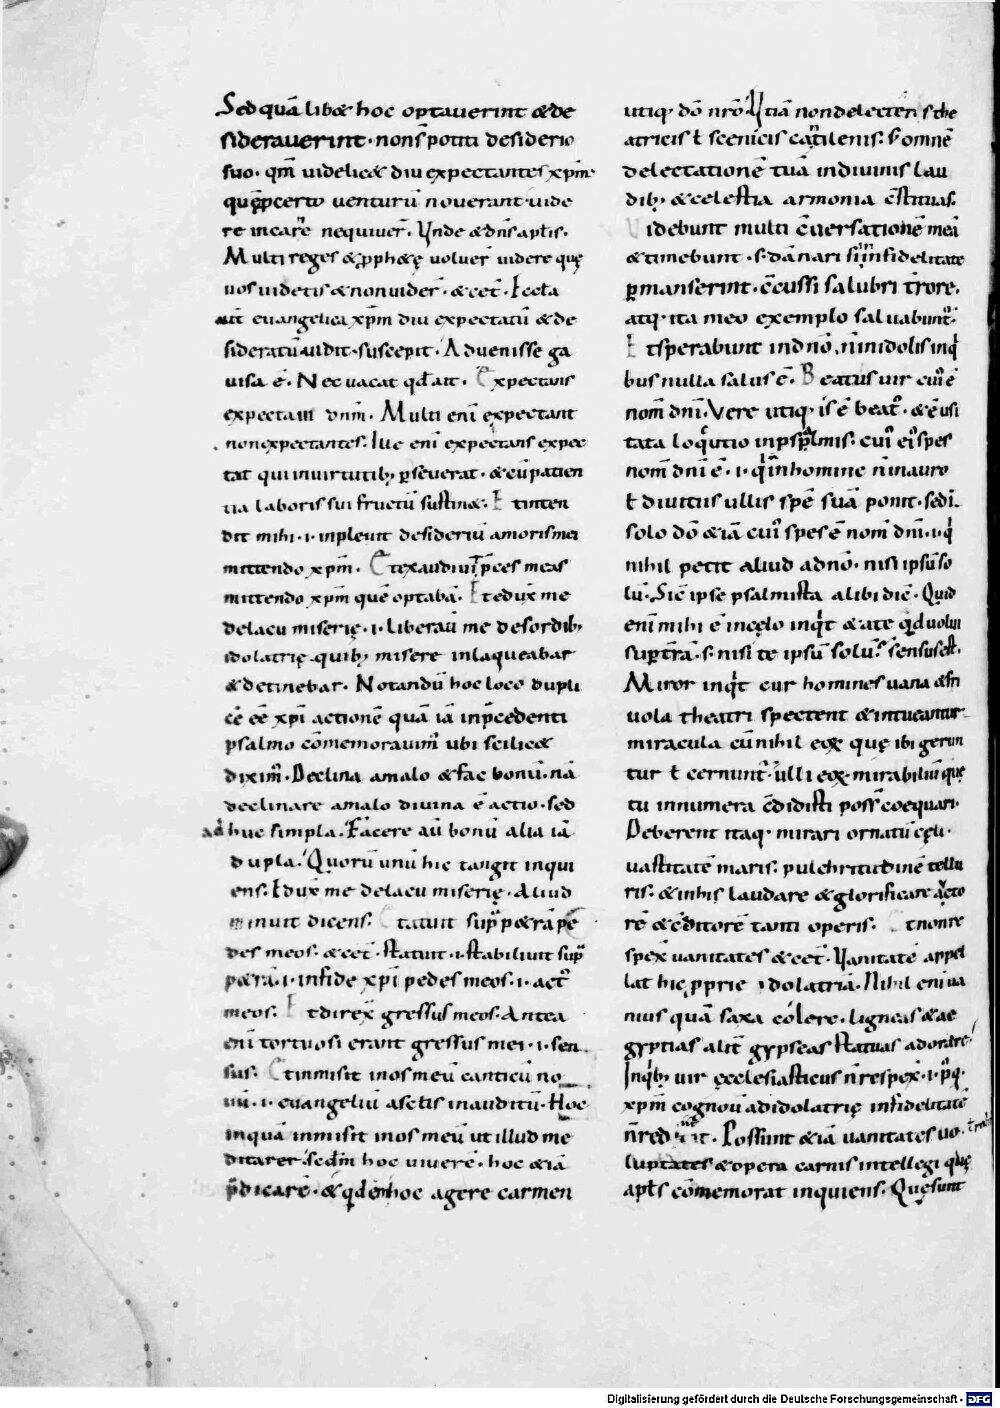 Sed quā libæ hoc optauerint & de
siderauerint · non s̄ potiti desiderio
suo · qm̄ uidelicæ diu expectantes xp̄m·
quē p certo uenturū nouerant uide
re in carn̄e nequiuer̄. Unde & dn̄s apt̄is.
Multi reges & p̱phæę uoluer̄ uidere quę
uos uidetis & non uider̄ · & cet̄. Eccła
aut̄ euangelica xp̄m diu expectatū & de
sideratū uidit · suscepit. Aduenisse ga
uisa ē. Nec uacat qd̄ ait. Expectans
expectaui dn̄m. Multi eni expectant
non expectantes. Ille eni expectans expec
tat qui in uirtutib; p̱seuerat · & cū patien
tia laboris sui fructū sustinæ. Et inten
dit mihi · i · inpleuit desideriū amoris mei
mittendo xp̄m. Et exaudiuit p̄ces meas
mittendo xp̄m quē optabā. Et edux̄ me
de lacu miserię · i · liberauit me de sordib;
idolatrię quib; misere inlaqueabar
& detinebar. Notandū hoc loco dupli
cē eē xp̄i actionē quā iā in p̄cedenti
psalmo cōmemorauim; ubi scilicæ
dixim;. Declina a malo & fac bonū. nā
declinare a malo diuina ē actio · sed
adhuc simpla. Facere aū bonū alia iā
dupla. Quorū unū hic tangit inqui
ens. Edux̄ me de lacu miserię. Aliud
innuit dicens. Et statuit sup̄ pærā pe
des meos · & cet̄. Statuit · i · stabiliuit sup̄
pærā · i · in fide xp̄i pedes meos · i · act;
meos. Et direx̄ gressus meos. Antea
enī tortuosi erant gressus mei · i · sen
sus. Et inmisit in os meū canticū no
uū · i · euangeliū a sc̄lis inauditū. Hoc
inquā inmisit in os meū ut illud me
ditarer · sedm̄ hoc uiuerē · hoc & iā
p̄dicarē · & qd̄ē in hoc agere carmen
utiq; dō nr̄o. Ut iā non delecteris the
atricis ł scenicis cantilenis. s; omnē
delectationē tuā in diuinis lau
dib; & celestia armonia c̄stituas.
Videbunt multi c̄uersationē meā
& timebunt · s · dānari si in infidelitate
p̱manserint. c̄cussi salubri t̄rore.
atq; ita meo exemplo saluabunt;.
Et sperabunt in dn̄o · n̄ in idolis in q;
bus nulla salus ē. Beatus uir cui; ē
nom̄ dn̄i. Vere utiq; is ē beat; · & ē usi
tata loqutio in psalmis. cui; ei; spes
nom̄ dn̄i ē · i · qui n̄ in homine n̄ in auro
ł diuitiis ullis spē suā ponit · sed in
solo dō & iā cui; spes ē nom̄ dn̄i · i · qi
nihil petit aliud a dn̄o · nisi ipsū so
lū. Sic̄ ipse psalmista alibi dic̄. Quid
enī mihi ē in cęlo inqt̄ & a te qd̄ uolui
sup̱ t̄rā · s · nisi te ipsū solū. s; sensus est.
Miror inqt̄ cur homines uana & fri
uola theatri spectent & intueantur
miracula cū nihil eoꝝ quę ibi gerun
tur ł cernunt; ulli eoꝝ mirabiliū quę
tu innumera c̄didisti poss̄ coequari.
Deberent itaq; mirari ornatū cęli ·
uastitatē maris. pulchritudinē tellu
ris. & in his laudare & glorificare aucto
rē & c̄ditorē tanti operis. Et non re
spex̄ uanitates & cet̄. Vanitatē appel
lat hic p̱prie idolatriā. Nihil eni ua
nius quā saxa cōlere · ligneas & ae
gyptias alit̄ gypseas statuas adorare.
Inq;b; uir ęcclesiasticus n̄ respex̄ · i · p;q̄
xp̄m cognouit ad idolatrię infidelitatē
n̄ redi it. Possunt & iā uanitates uo
luptates & opera carnis intellegi quę
apt̄s cōmemorat inquiens. Quę sunt